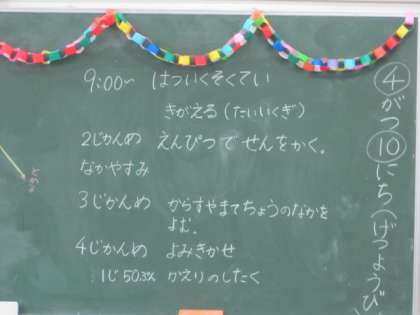 ④がつ⑩にち(げつようび)
9:00～ はついくそくてい
きがえる(たいいくぎ)
2じかんめ えんぴつでせんをかく。
なかやすみ
3じかんめ からすやまてちょうのなかを
よむ。
4じかんめ よみきかせ
1じ50ぷん かえりのしたく